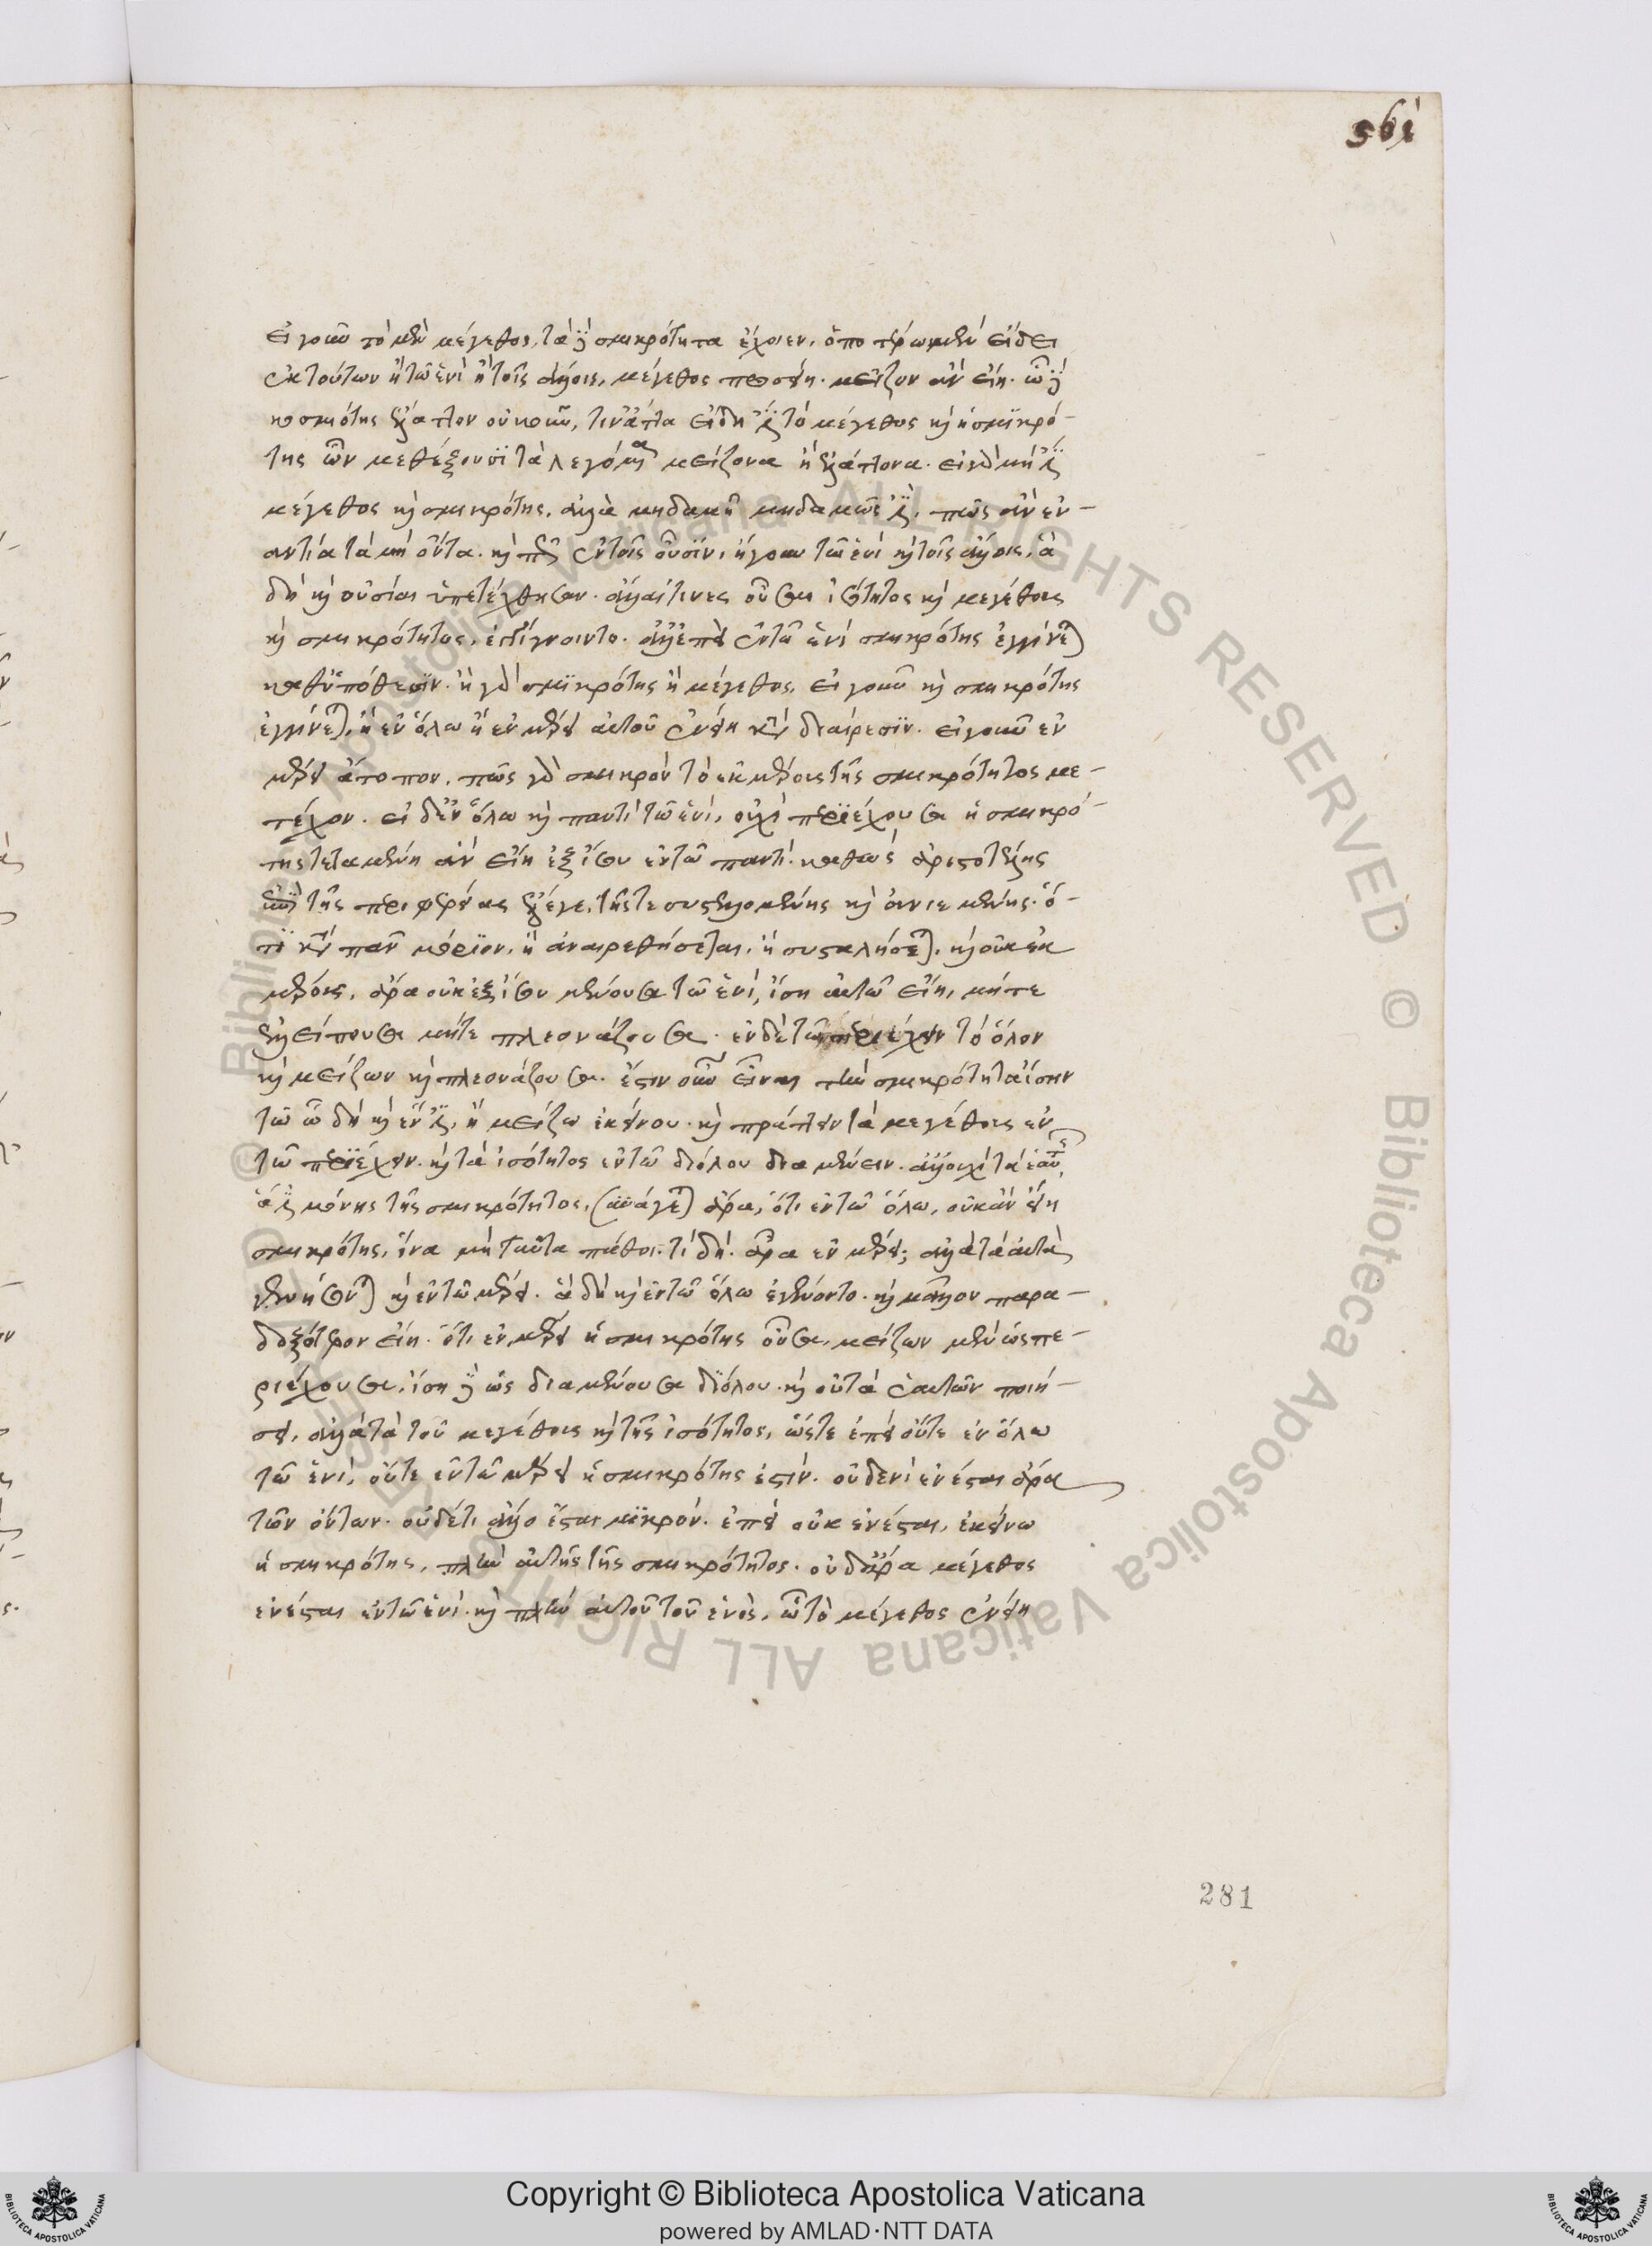 561
εἰ γοῦν τὸ μὲν μέγεθος, τὰ δὲ σμικρότητα ἔχοιεν, ὁποτέρω μὲν εἴδει
ἐκ τούτων ἢ τῶ ἑνὶ ἢ τοῖς ἄλλοις, μέγεθος προσῆ. μεῖζον ἂν εἴη. ὧ δὲ
σμικρότης ἔλαττον οὐκοῦν, τινὰ ταῦτα εἴδη ἐστὶ τὸ μέγεθος καὶ ἡ σμικρό-
της ὧν μεθέξουσι τὰ λεγόμενα μείζονα ἢ ἐλάττονα. εἰ γὰρ μή ἐστι
μέγεθος καὶ σμικρότης, ἀλλὰ μηδαμῆ μηδαμῶς ἐστὶ, πῶς ἂν ἐν-
αντία τὰ μὴ ὄντα. καὶ πῶς ἐν τοῖς οὖσιν, ἤγουν τῶ ἑνὶ καὶ τοῖς ἄλλοις, ἃ
δὴ καὶ οὐσίαι ὑπετέχθησαν. ἀλλαί τινες οὖσαι ἰσότητος καὶ μεγέθους
καὶ σμικρότητος, ἐπιγίγνοιντο. ἀλλ' ἐπεὶ ἐν τῶ ἑνὶ σμικρότης ἐγγίνεται
καθ' ὑπόθεσιν. ἢ γὰρ σμικρότης ἢ μέγεθος, εἰ γοῦν καὶ σμικρότης
ἐγγίνεται, ἢ ἐν ὅλω ἢ ἐν μέρει αὐτοῦ ἐνείη κατὰ διαίρεσιν. εἰ γοῦν ἐν
μέρει ἄτοπον. πῶς γὰρ σμικρὸν τὸ ἐκ μέρους τῆς σμικρότητος με-
τέχον. εἰ δ' ἐν ὅλω καὶ παντὶ τῶ ἑνὶ, οὐχὶ περιέχουσα ἡ σμικρό-
της τεταμένη ἂν εἴη ἐξίσου ἐν τῶ παντί. καθὼς ἀριστοτέλης
τῆς περιφερείας ἔλεγε, τῆς τε συστελλομένης καὶ ἀνιεμένης. ὅ-
τι κατὰ πᾶν μόριον, ἢ ἀναιρεθήσεται, ἢ συσταλήσεται, καὶ οὐκ ἐκ
μέρους, ἆρα οὐκ ἐξίσου μένουσα τῶ ἑνὶ, ἴση αὐτῶ εἴη, μήτε
ἐλλείπουσα μήτε πλεονάζουσα. ἐν δὲ τῶ περιέχειν τὸ ὅλον
καὶ μείζων καὶ πλεονάζουσα. ἔστιν οὖν εἶναι τὴν σμικρότητα ἴσην
τῶ ὧ δὴ καὶ ἔνεστι, ἢ μείζω ἐκείνου. καὶ πράττειν τὰ μεγέθους ἐν
τῶ περιέχειν. καὶ τὰ ἰσότητος ἐν τῶ διόλου διαμένειν. ἀλλ' οὐχὶ τὰ ἑαυτῆς
ἅ ἐστι μόνης τῆς σμικρότητος, (συνάγεται) ἄρα, ὅτι ἐν τῶ ὅλω, οὐκ ἂν εἴη
σμικρότης, ἵνα μὴ ταῦτα πάθοι. τί δή. ἆρα ἐν μέρει; ἀλλὰ τὰ αὐτὰ
γενήσονται καὶ ἐν τῶ μέρει. ἃ δὴ καὶ ἐν τῶ ὅλω ἐγένοντο. καὶ μᾶλλον παρα-
δοξότερον εἴη. ὅτι ἐν μέρει ἡ σμικρότης οὖσα, μείζων μὲν ὡς πε-
ριέχουσα, ἴση δὲ ὡς διαμένουσα διόλου. καὶ οὐ τὰ ἑαυτῶν ποιή-
σει, ἀλλὰ τὰ τοῦ μεγέθους καὶ τῆς ἰσότητος, ὥστε ἐπεὶ οὔτε ἐν ὅλω
τῶ ἑνὶ, οὔτε ἐν τῶ μέρει ἡ σμικρότης ἐστίν. οὐδενὶ ἐνέσται ἄρα
τῶν ὄντων. οὐδέ τι ἄλλο ἔσται μικρόν. ἐπεὶ οὐκ ἐνέσται, ἐκείνω
ἡ σμικρότης, πλὴν αὐτῆς τῆς σμικρότητος. οὐδ' ἄρα μέγεθος
ἐνέσται ἐν τῶ ἑνὶ. καὶ πλὴν αὐτοῦ τοῦ ἑνὸς, ὧ τὸ μέγεθος ἐνείη
281
Copyright © Biblioteca Apostolica Vaticana
powered by AMLAD·NTT DATA